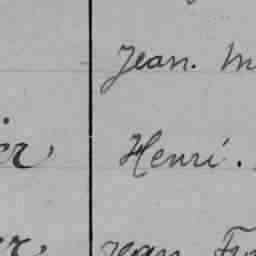 Jean. M
er, Henri.
er, Jean Fr